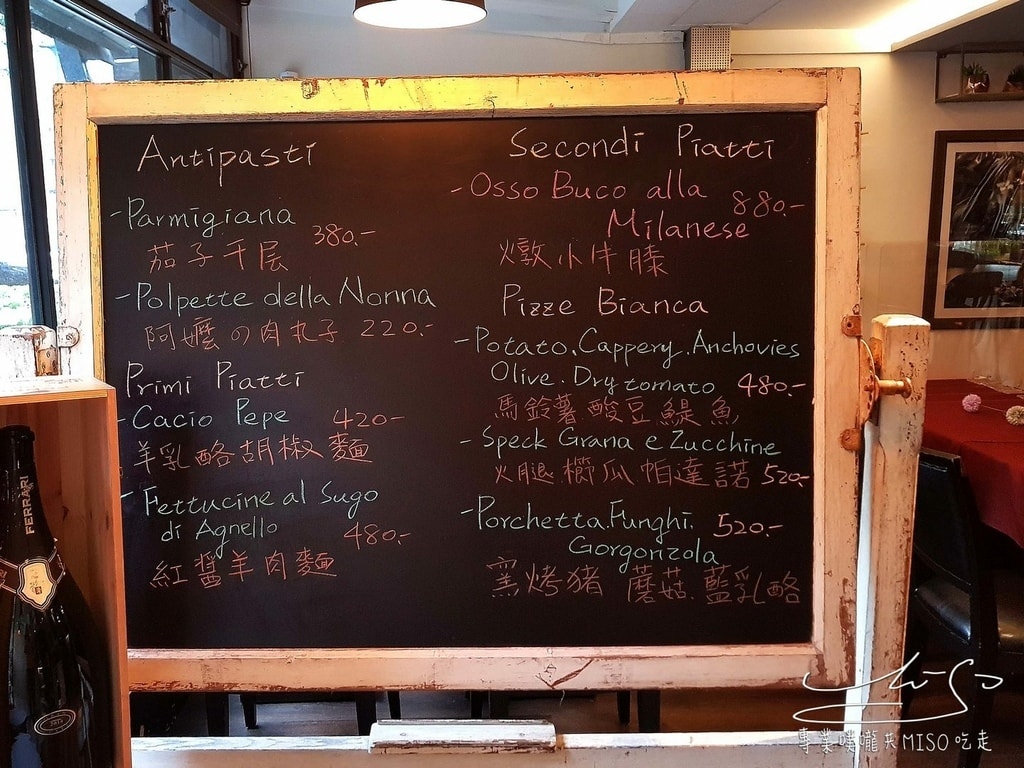 Antipasti
-Parmigiana
茄子千层 380.-
-Polpette della Nonna
阿嬤の肉丸子 220.-
Primi Piatti
-Cacio Pepe 420-
羊乳酪胡椒麵
-Fettucine al Sugo
di Agnello 480.-
紅醬羊肉麵
Secondi Piatti
-Osso Buco alla
Milanese 880.-
燉小牛膝
Pizze Bianca
-Potato.Cappery.Anchovies
Olive.Dry tomato 480.-
馬鈴薯酸豆鯷魚
-Speck Grana e Zucchine
火腿櫛瓜帕達諾 520-
-Porchetta.Funghi. 520.-
Gorgonzola
窯烤豬 蘑菇.藍乳酪
FERRARI
MISO
MISO吃走